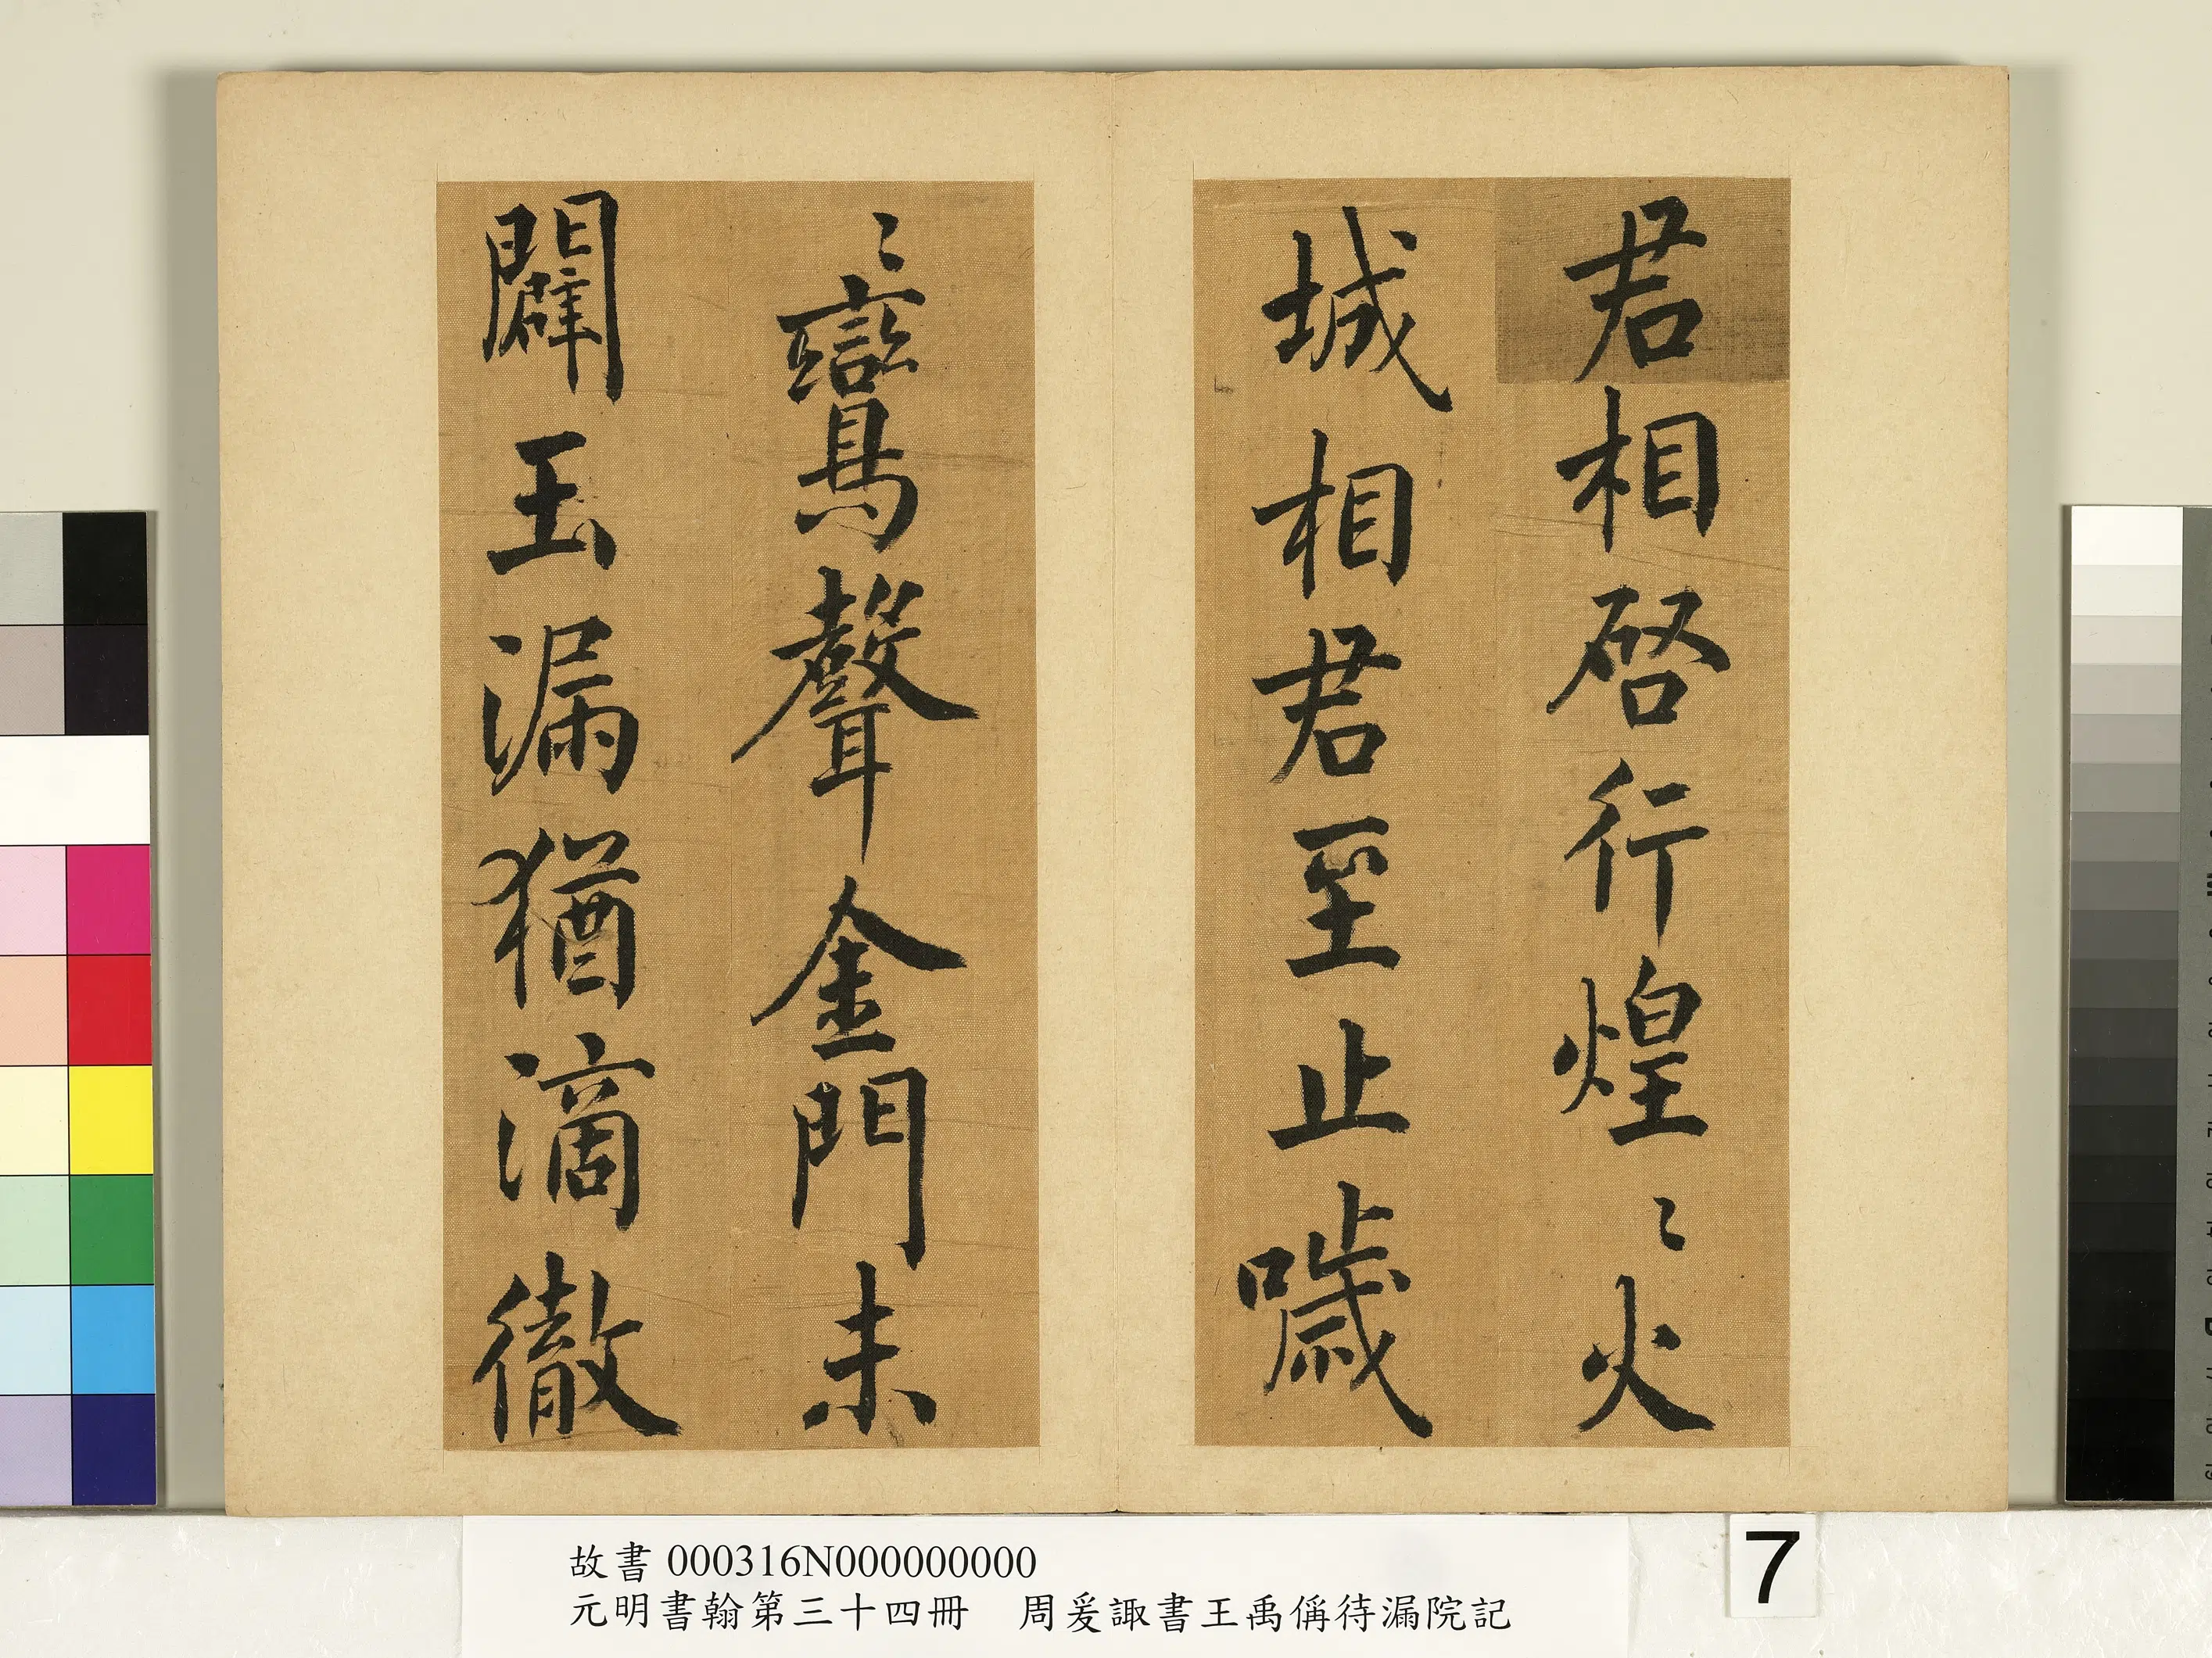 君相啓行煌〻火
城相君至止噦
〻鸞聲金門未
闢玉漏猶滴徹
故書 000316N000000000
元明書翰第三十四冊　周爰諏書王禹偁待漏院記
7